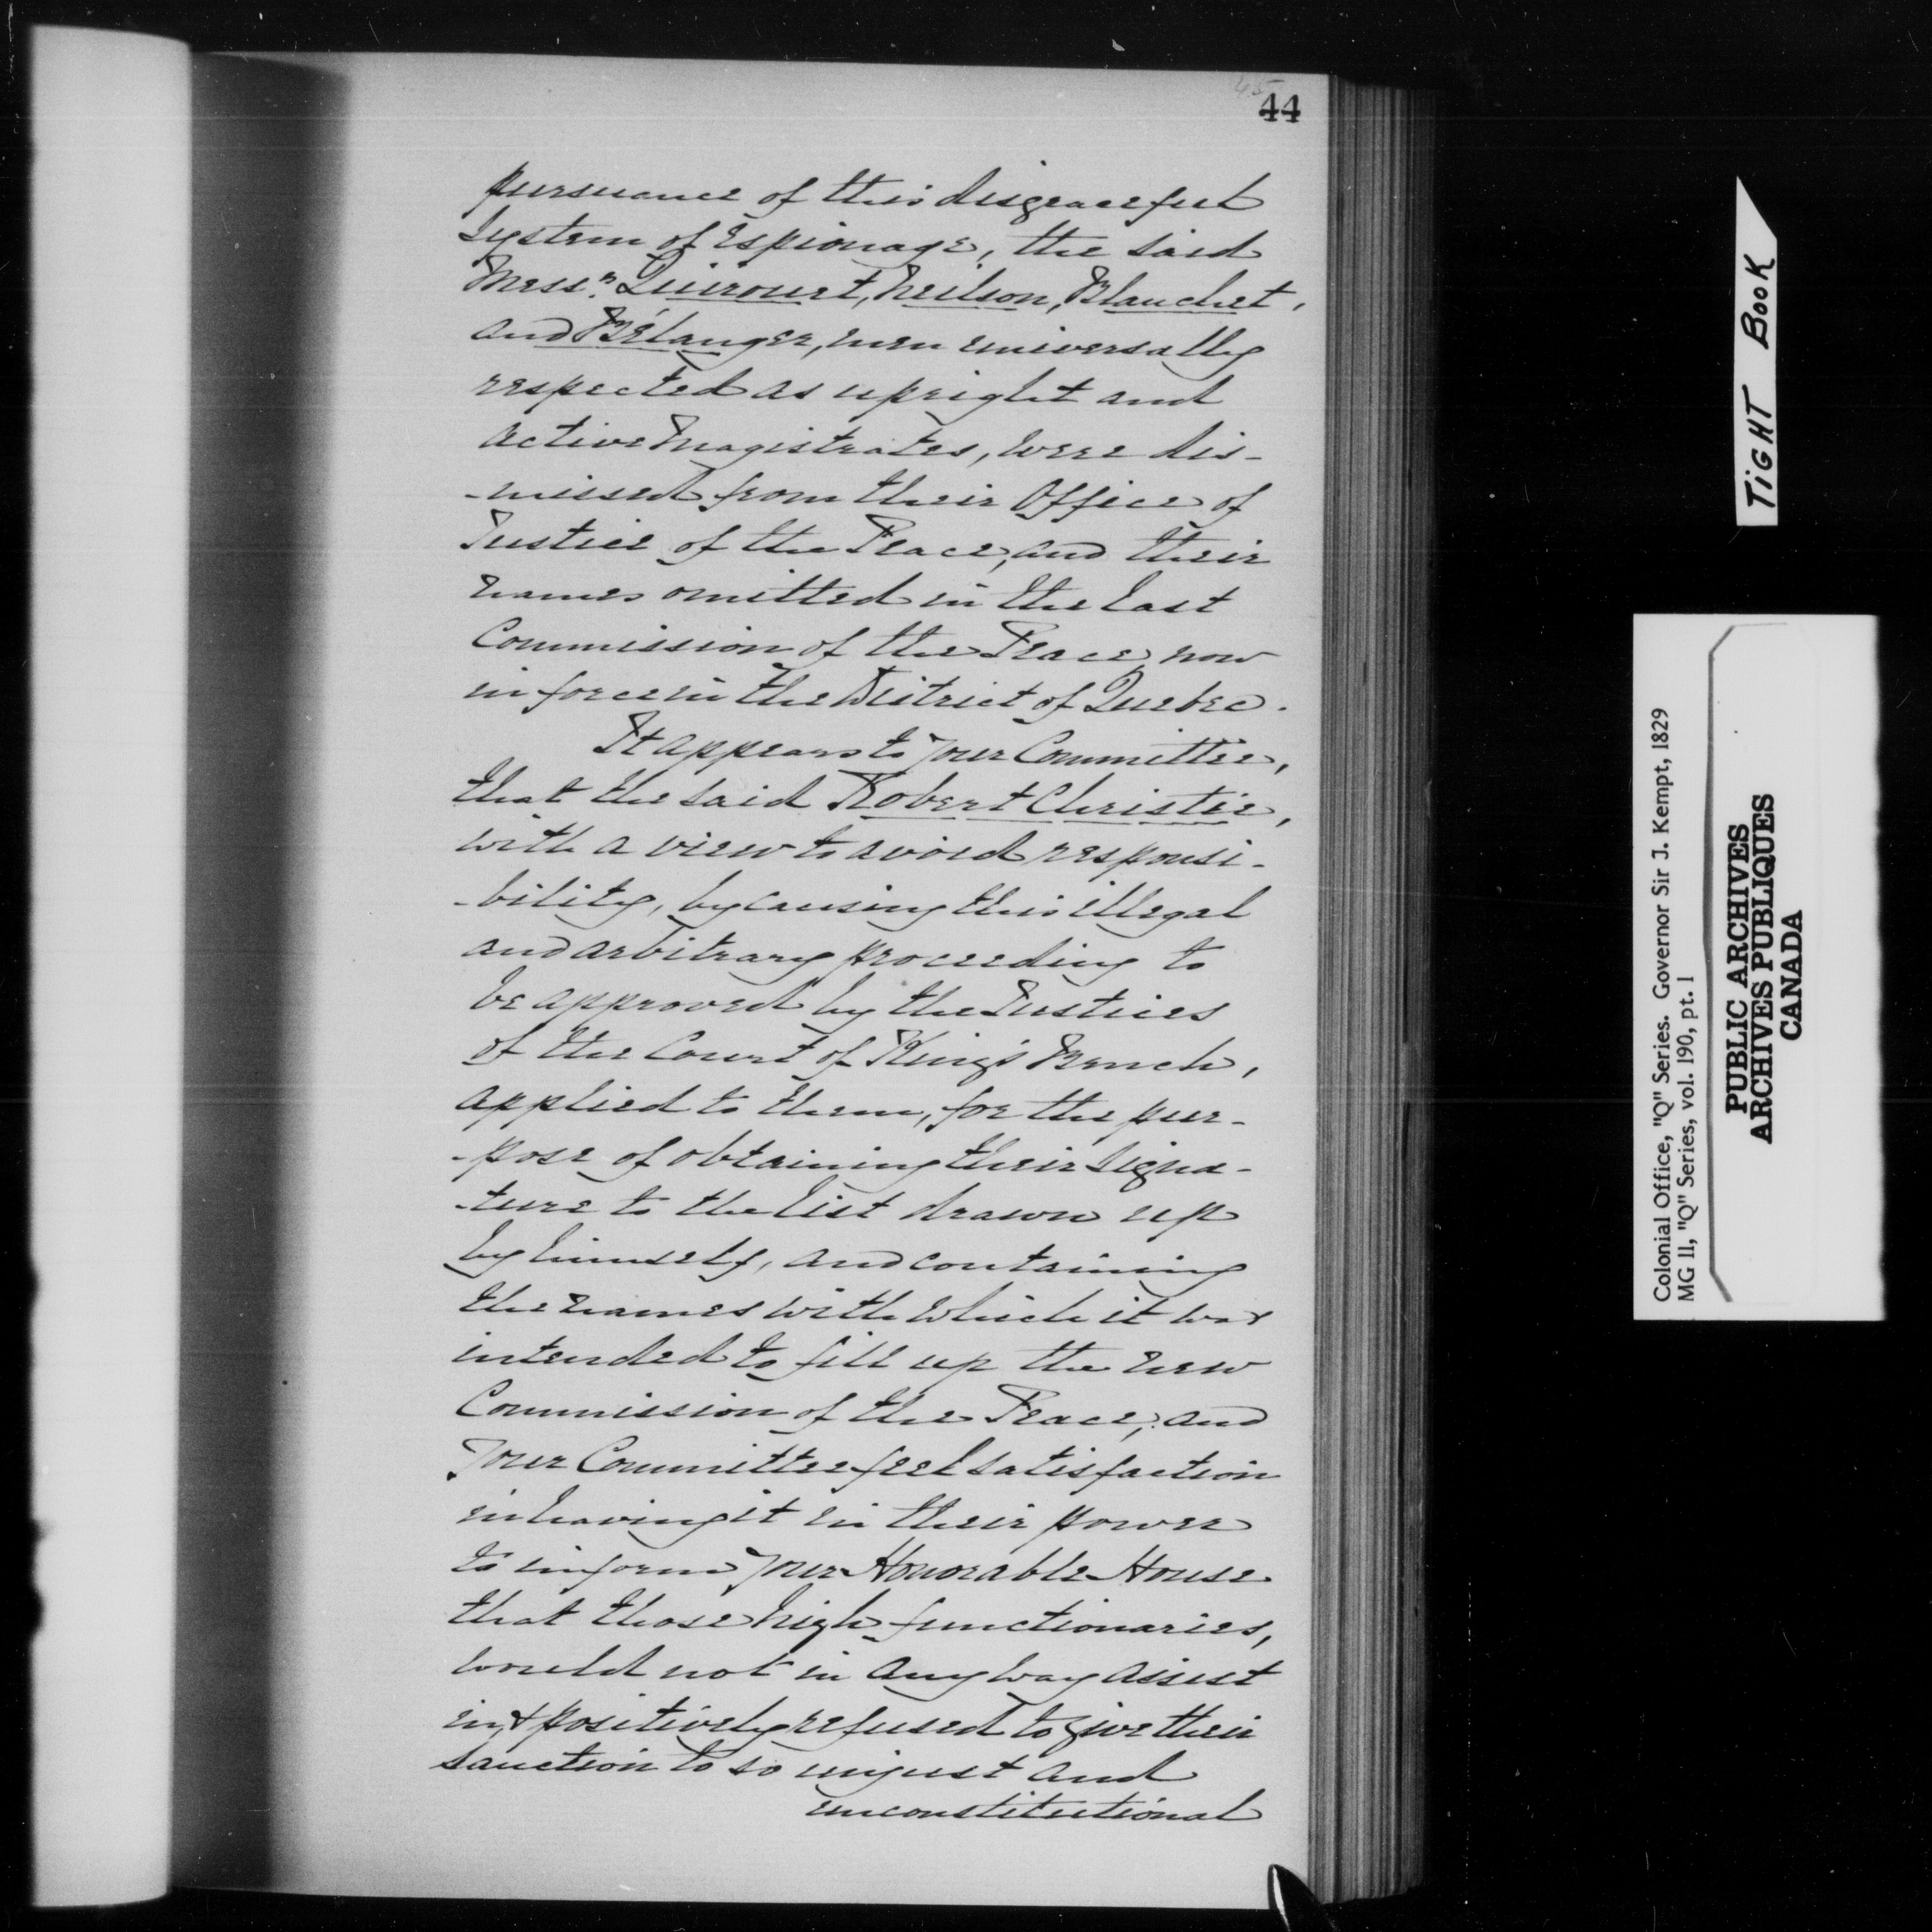 45
44
pursuance of this disgraceful
System of Espionage, the said
Messrs. Quirouet, Neilson, Blanchet,
and Bélanger, men universally
respected as upright and
active Magistrates, were dis-
-missed from their Office of
Justice of the Peace, and their
names omitted in the last
Commission of the Peace now
in force in the District of Quebec.
It appears to your Committee,
that the said Robert Christie,
with a view to avoid responsi-
-bility, by causing this illegal
and arbitrary proceeding to
be approved by the Justices
of the Court of King's Bench,
applied to them, for the pur-
-pose of obtaining their Signa-
-ture to the list drawn up
by himself, and containing
the names with which it was
intended to fill up the new
Commission of the Peace; and
Your Committee feel satisfaction
in having it in their power
to inform your Honorable House
that those high functionaries,
would not in any way assist
in, & positively refused to give their
sanction to so unjust and
unconstitutional
TIGHT BOOK
Colonial Office, "Q" Series. Governor Sir J. Kempt, 1829
MG 11, "Q" Series, vol. 190, pt. 1
PUBLIC ARCHIVES
ARCHIVES PUBLIQUES
CANADA